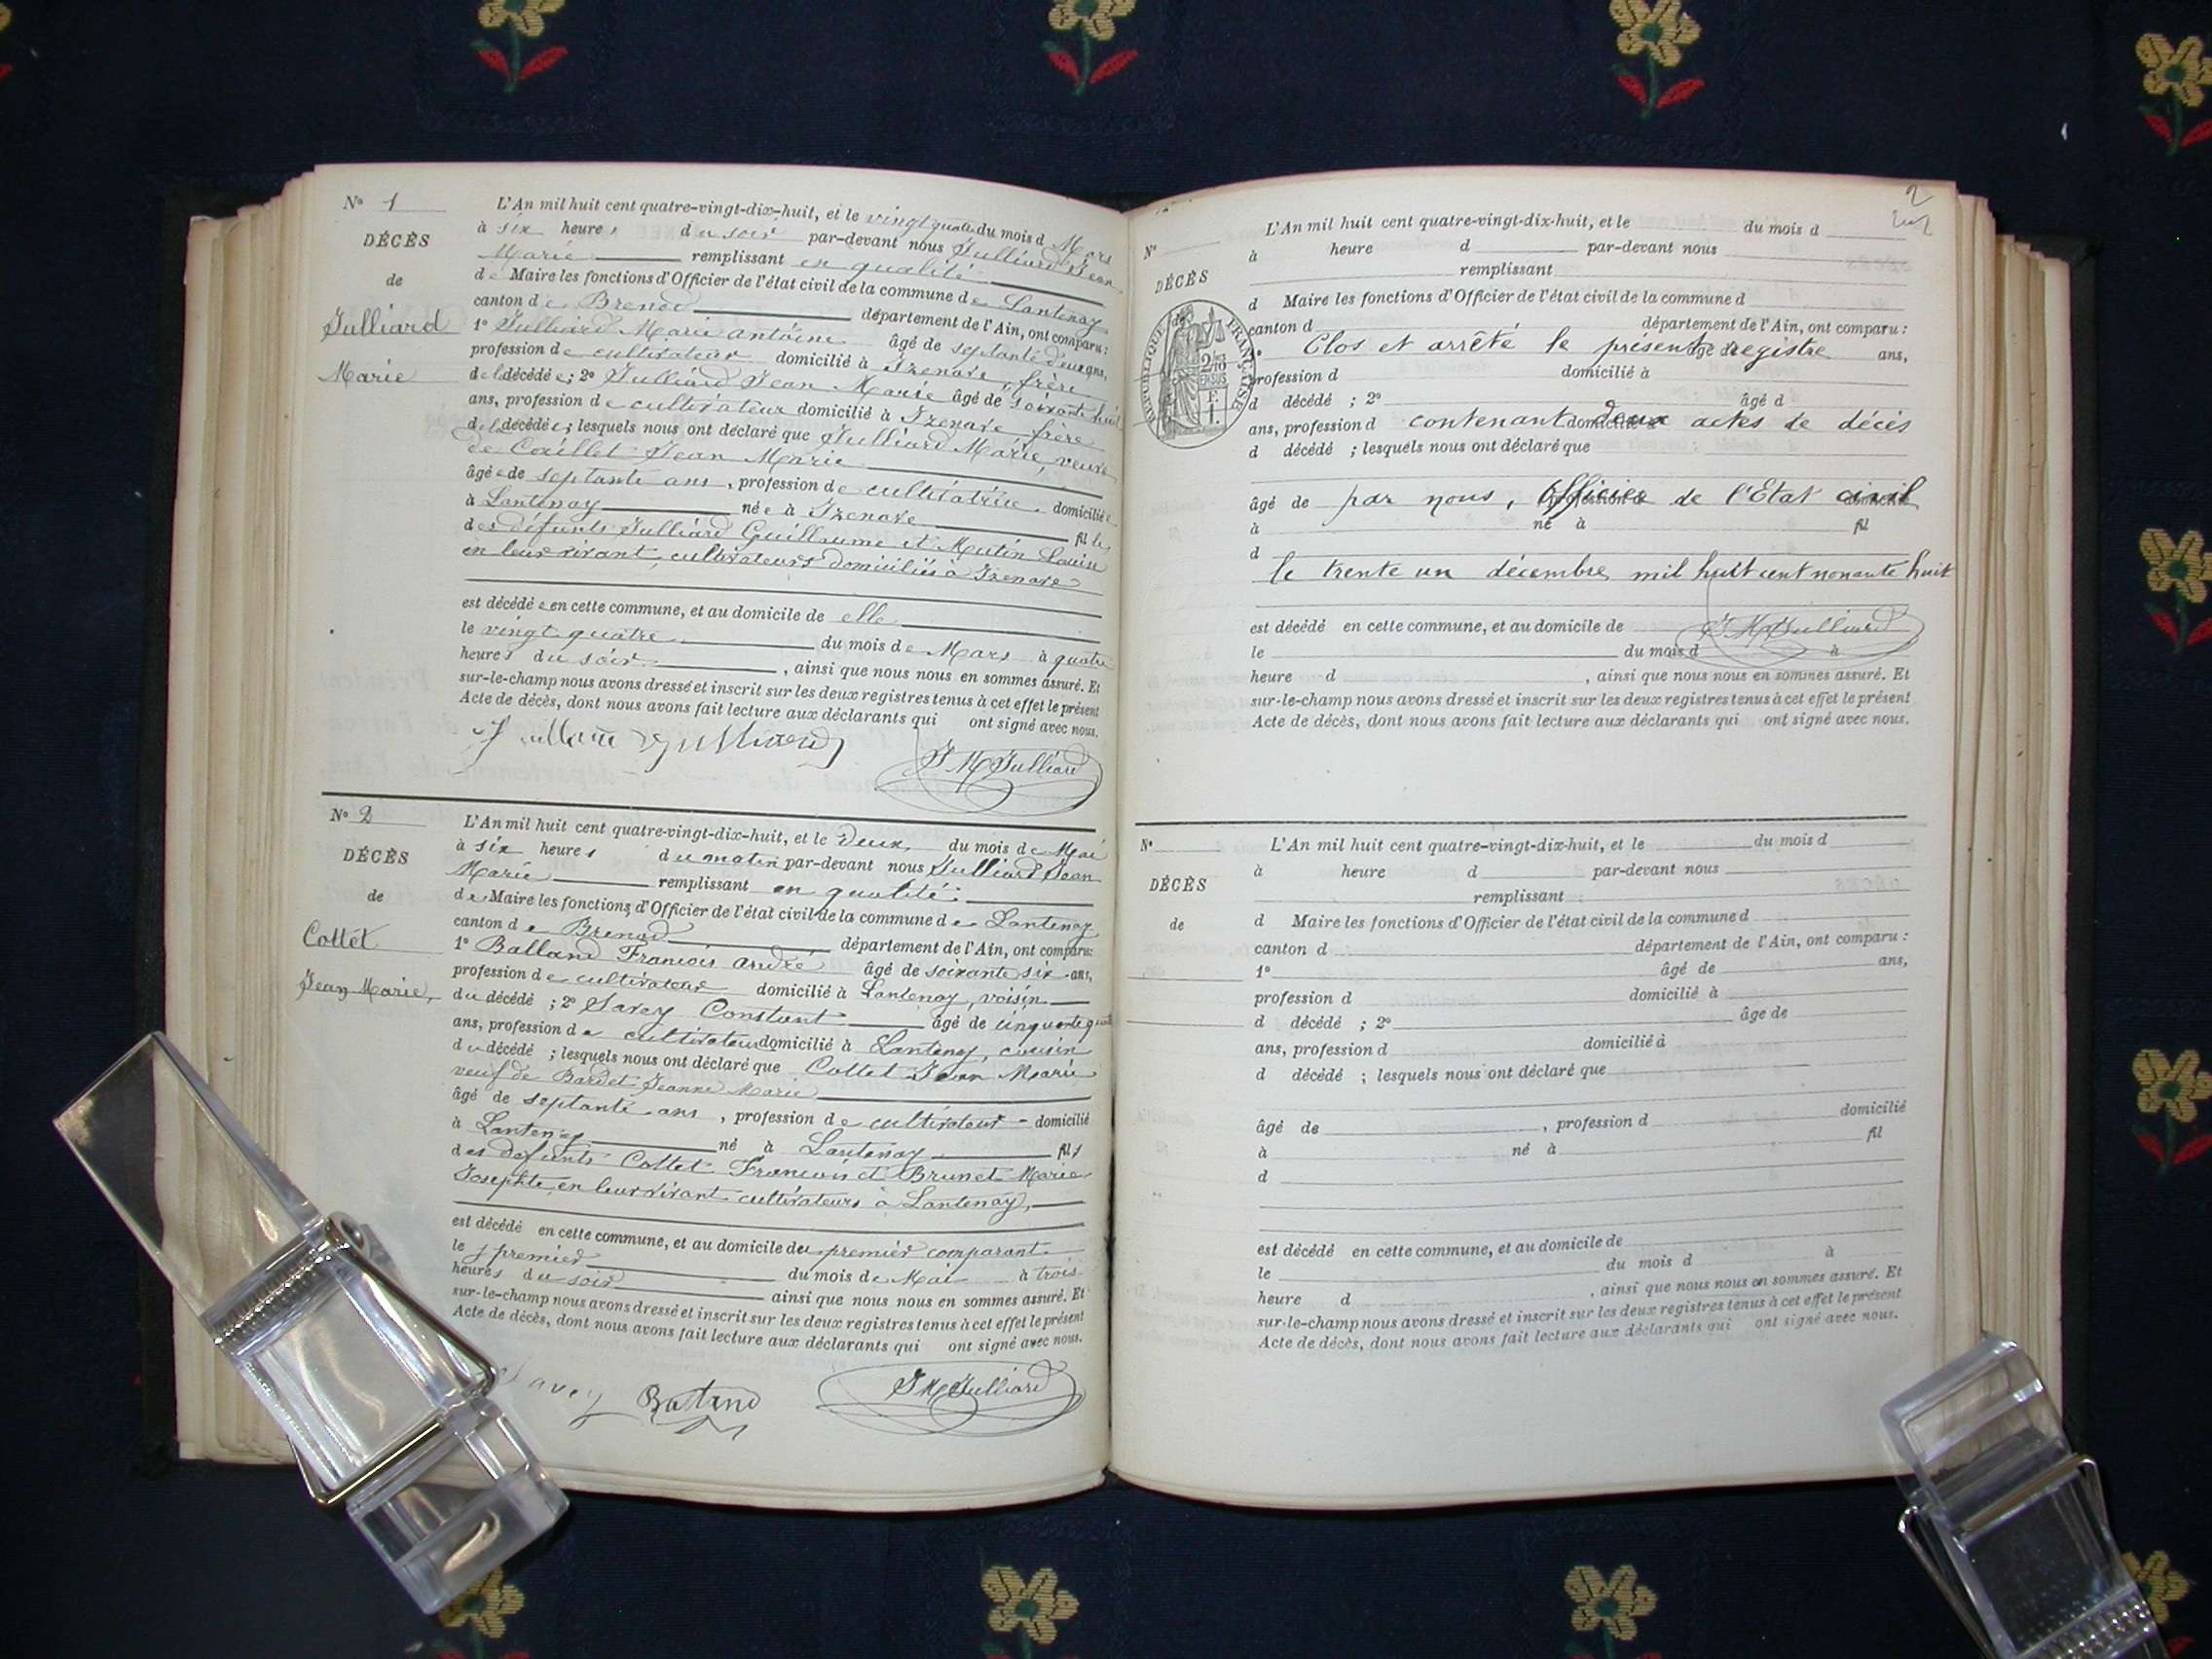 N° 1
DÉCÈS
de
Julliard
Marie
L'An mil huit cent quatre-vingt-dix-huit, et le vingt quatre du mois d Mars
à six heures du soir par-devant nous Julliard Jean
Marie remplissant en qualité
de Maire les fonctions d'Officier de l'état civil de la commune de Lantenay
canton de Brenod département de l'Ain, ont comparu:
1° Julliard Marie antoine âgé de septante deux ans,
profession de cultivateur domicilié à Izenave, frère
de la décédée; 2° Julliard Jean Marie âgé de soixante huit
ans, profession de cultivateur domicilié à Izenave frère
de la décédée; lesquels nous ont déclaré que Julliard Marie, veuve
de Jean Marie
âgée de septante ans, profession de cultivatrice domiciliée
à Lantenay née à Izenave fille
des défunts Julliard Guillaume et Mutin
en leur vivant, cultivateurs domiciliés à Izenave
est décédée en cette commune, et au domicile de elle
le vingt quatre du mois de Mars à quatre
heures du soir, ainsi que nous nous en sommes assuré. Et
sur-le-champ nous avons dressé et inscrit sur les deux registres tenus à cet effet le présent
Acte de décès, dont nous avons fait lecture aux déclarants qui ont signé avec nous.
J M Julliard
N° 2
DÉCÈS
de
Collet
Jean Marie,
L'An mil huit cent quatre-vingt-dix-huit, et le deux, du mois de Mai
à six heures du matin par-devant nous Julliard Jean
Marie remplissant en qualité
de Maire les fonctions d'Officier de l'état civil de la commune de Lantenay
canton de Brenod département de l'Ain, ont comparu:
1° Balland Francois andré âgé de soixante six ans,
profession de cultivateur domicilié à Lantenay, voisin
du décédé ; 2° Savey Constant âgé de cinquante
ans, profession de cultivateur domicilié à Lantenay, cousin
du décédé ; lesquels nous ont déclaré que Collet Jean Marie
veuf de Bardet Jeanne Marie
âgé de septante ans, profession de cultivateur - domicilié
à Lantenay né à Lantenay fils
des defunts Collet Francois et Brunet Marie
Josephte en leur vivant cultivateurs à Lantenay,
est décédé en cette commune, et au domicile du premier comparant
le premier du mois de Mai à trois
heures du soir ainsi que nous nous en sommes assuré. Et
sur-le-champ nous avons dressé et inscrit sur les deux registres tenus à cet effet le présent
Acte de décès, dont nous avons fait lecture aux déclarants qui ont signé avec nous.
Savey Balland J M Julliard
2
N°
DÉCÈS
de
RÉPUBLIQUE FRANÇAISE
L'An mil huit cent quatre-vingt-dix-huit, et le du mois d
à heure d par-devant nous
remplissant
d Maire les fonctions d'Officier de l'état civil de la commune d
canton d département de l'Ain, ont comparu:
Clos et arrêté le présent registre
1° âgé de ans,
profession d domicilié à
d décédé ; 2° âgé d
contenant deux actes de décès
ans, profession d domicilié à
d décédé ; lesquels nous ont déclaré que
par nous, Officier de l'Etat civil
âgé de profession d domicilié
à né à fil
d
le trente un décembre mil huit cent nonante huit
est décédé en cette commune, et au domicile de
J M Julliard
le du mois d à
heure d, ainsi que nous nous en sommes assuré. Et
sur-le-champ nous avons dressé et inscrit sur les deux registres tenus à cet effet le présent
Acte de décès, dont nous avons fait lecture aux déclarants qui ont signé avec nous.
N°
DÉCÈS
de
L'An mil huit cent quatre-vingt-dix-huit, et le du mois d
à heure d par-devant nous
remplissant
d Maire les fonctions d'Officier de l'état civil de la commune d
canton d département de l'Ain, ont comparu:
1° âgé de ans,
profession d domicilié à
d décédé ; 2° âge de
ans, profession d domicilié à
d décédé ; lesquels nous ont déclaré que
âgé de, profession d domicilié
à né à fil
d
est décédé en cette commune, et au domicile de
le du mois d à
heure d, ainsi que nous nous en sommes assuré. Et
sur-le-champ nous avons dressé et inscrit sur les deux registres tenus à cet effet le présent
Acte de décès, dont nous avons fait lecture aux déclarants qui ont signé avec nous.